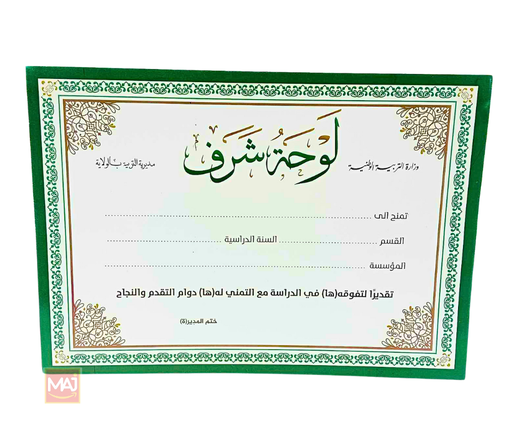 لَوحَةُ شَرَف
وزارة التربية الوطنية
مديرية التربية بالولاية
تمنح الى
القسم السنة الدراسية
المؤسسة
تقديرًا لتفوقه(ها) في الدراسة مع التمني له(ها) دوام التقدم والنجاح
ختم المدير(ة)
MAJ